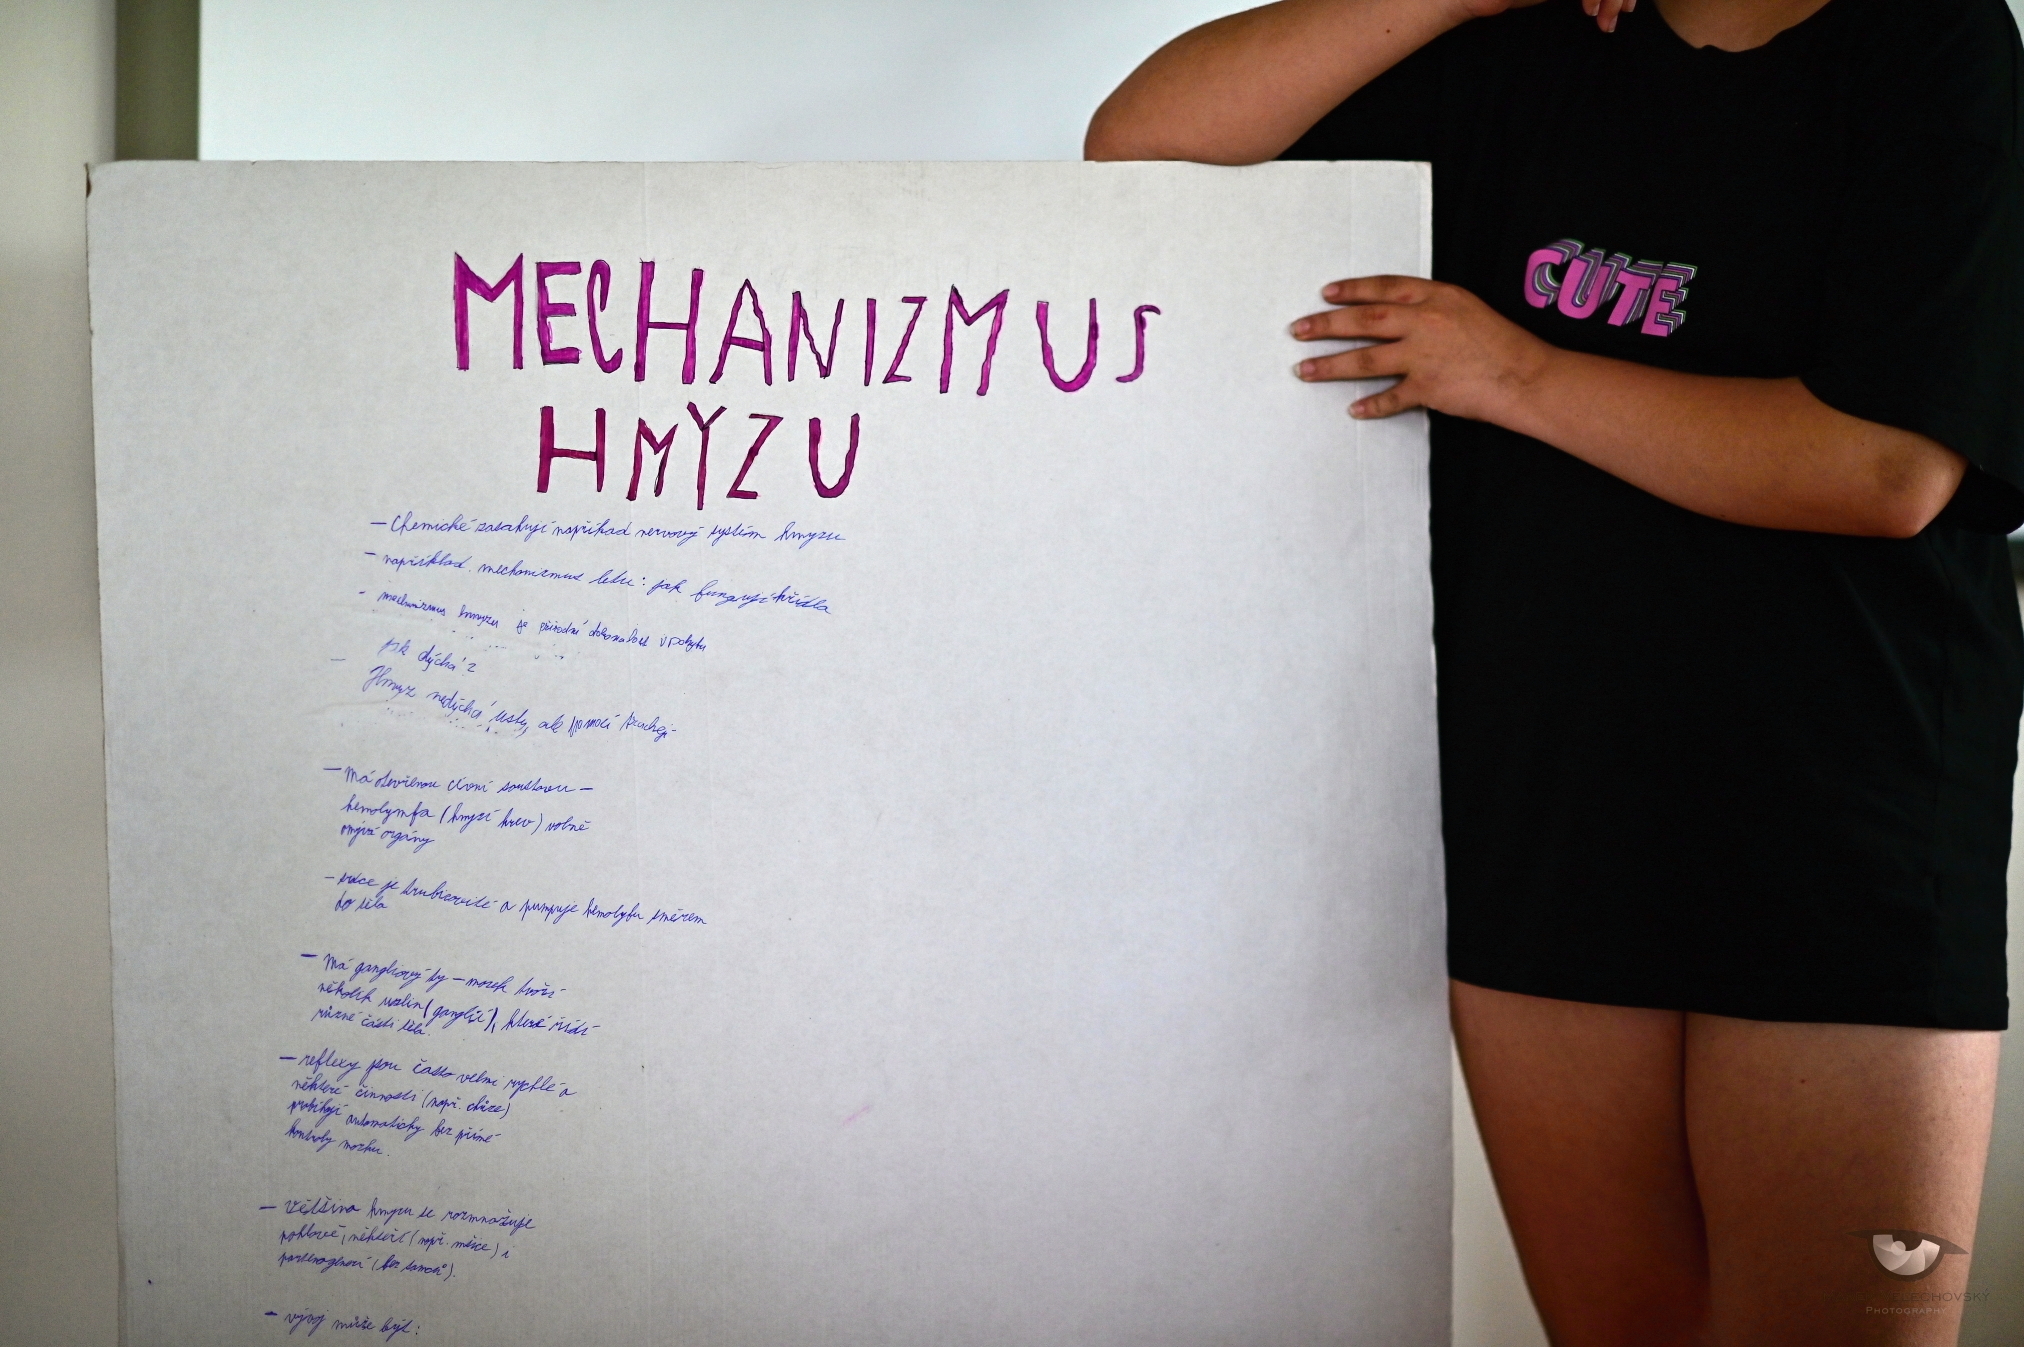 MECHANIZMUS
HMYZU
CUTE
– Chemické zasahují napřiklad nervový systém hmyzu
– například. mechanizmus letu: jak fungují křídla
– mechanizmus hmyzu je přírodní dokonalost v pohybu
Jak dýchá?
– Hmyz nedýchá ústy, ale pomocí
– Má otevřenou cévní soustavu –
hemolymfa (hmyzí krev) volně
omývá orgány
– srdce je trubicovité a pumpuje směrem
do těla
– Má gangliový – mozek tvoří
několik uzlin (ganglií), které řídí
různé části těla.
– reflexy jsou často velmi rychlé a
některé činnosti (např. chůze)
probíhají automaticky bez přímé
kontroly mozku.
– většina hmyzu se rozmnožuje
pohlavě, někteří (např. mšice) i
(bez samců).
– vývoj může být:
PHOTOGRAPHY